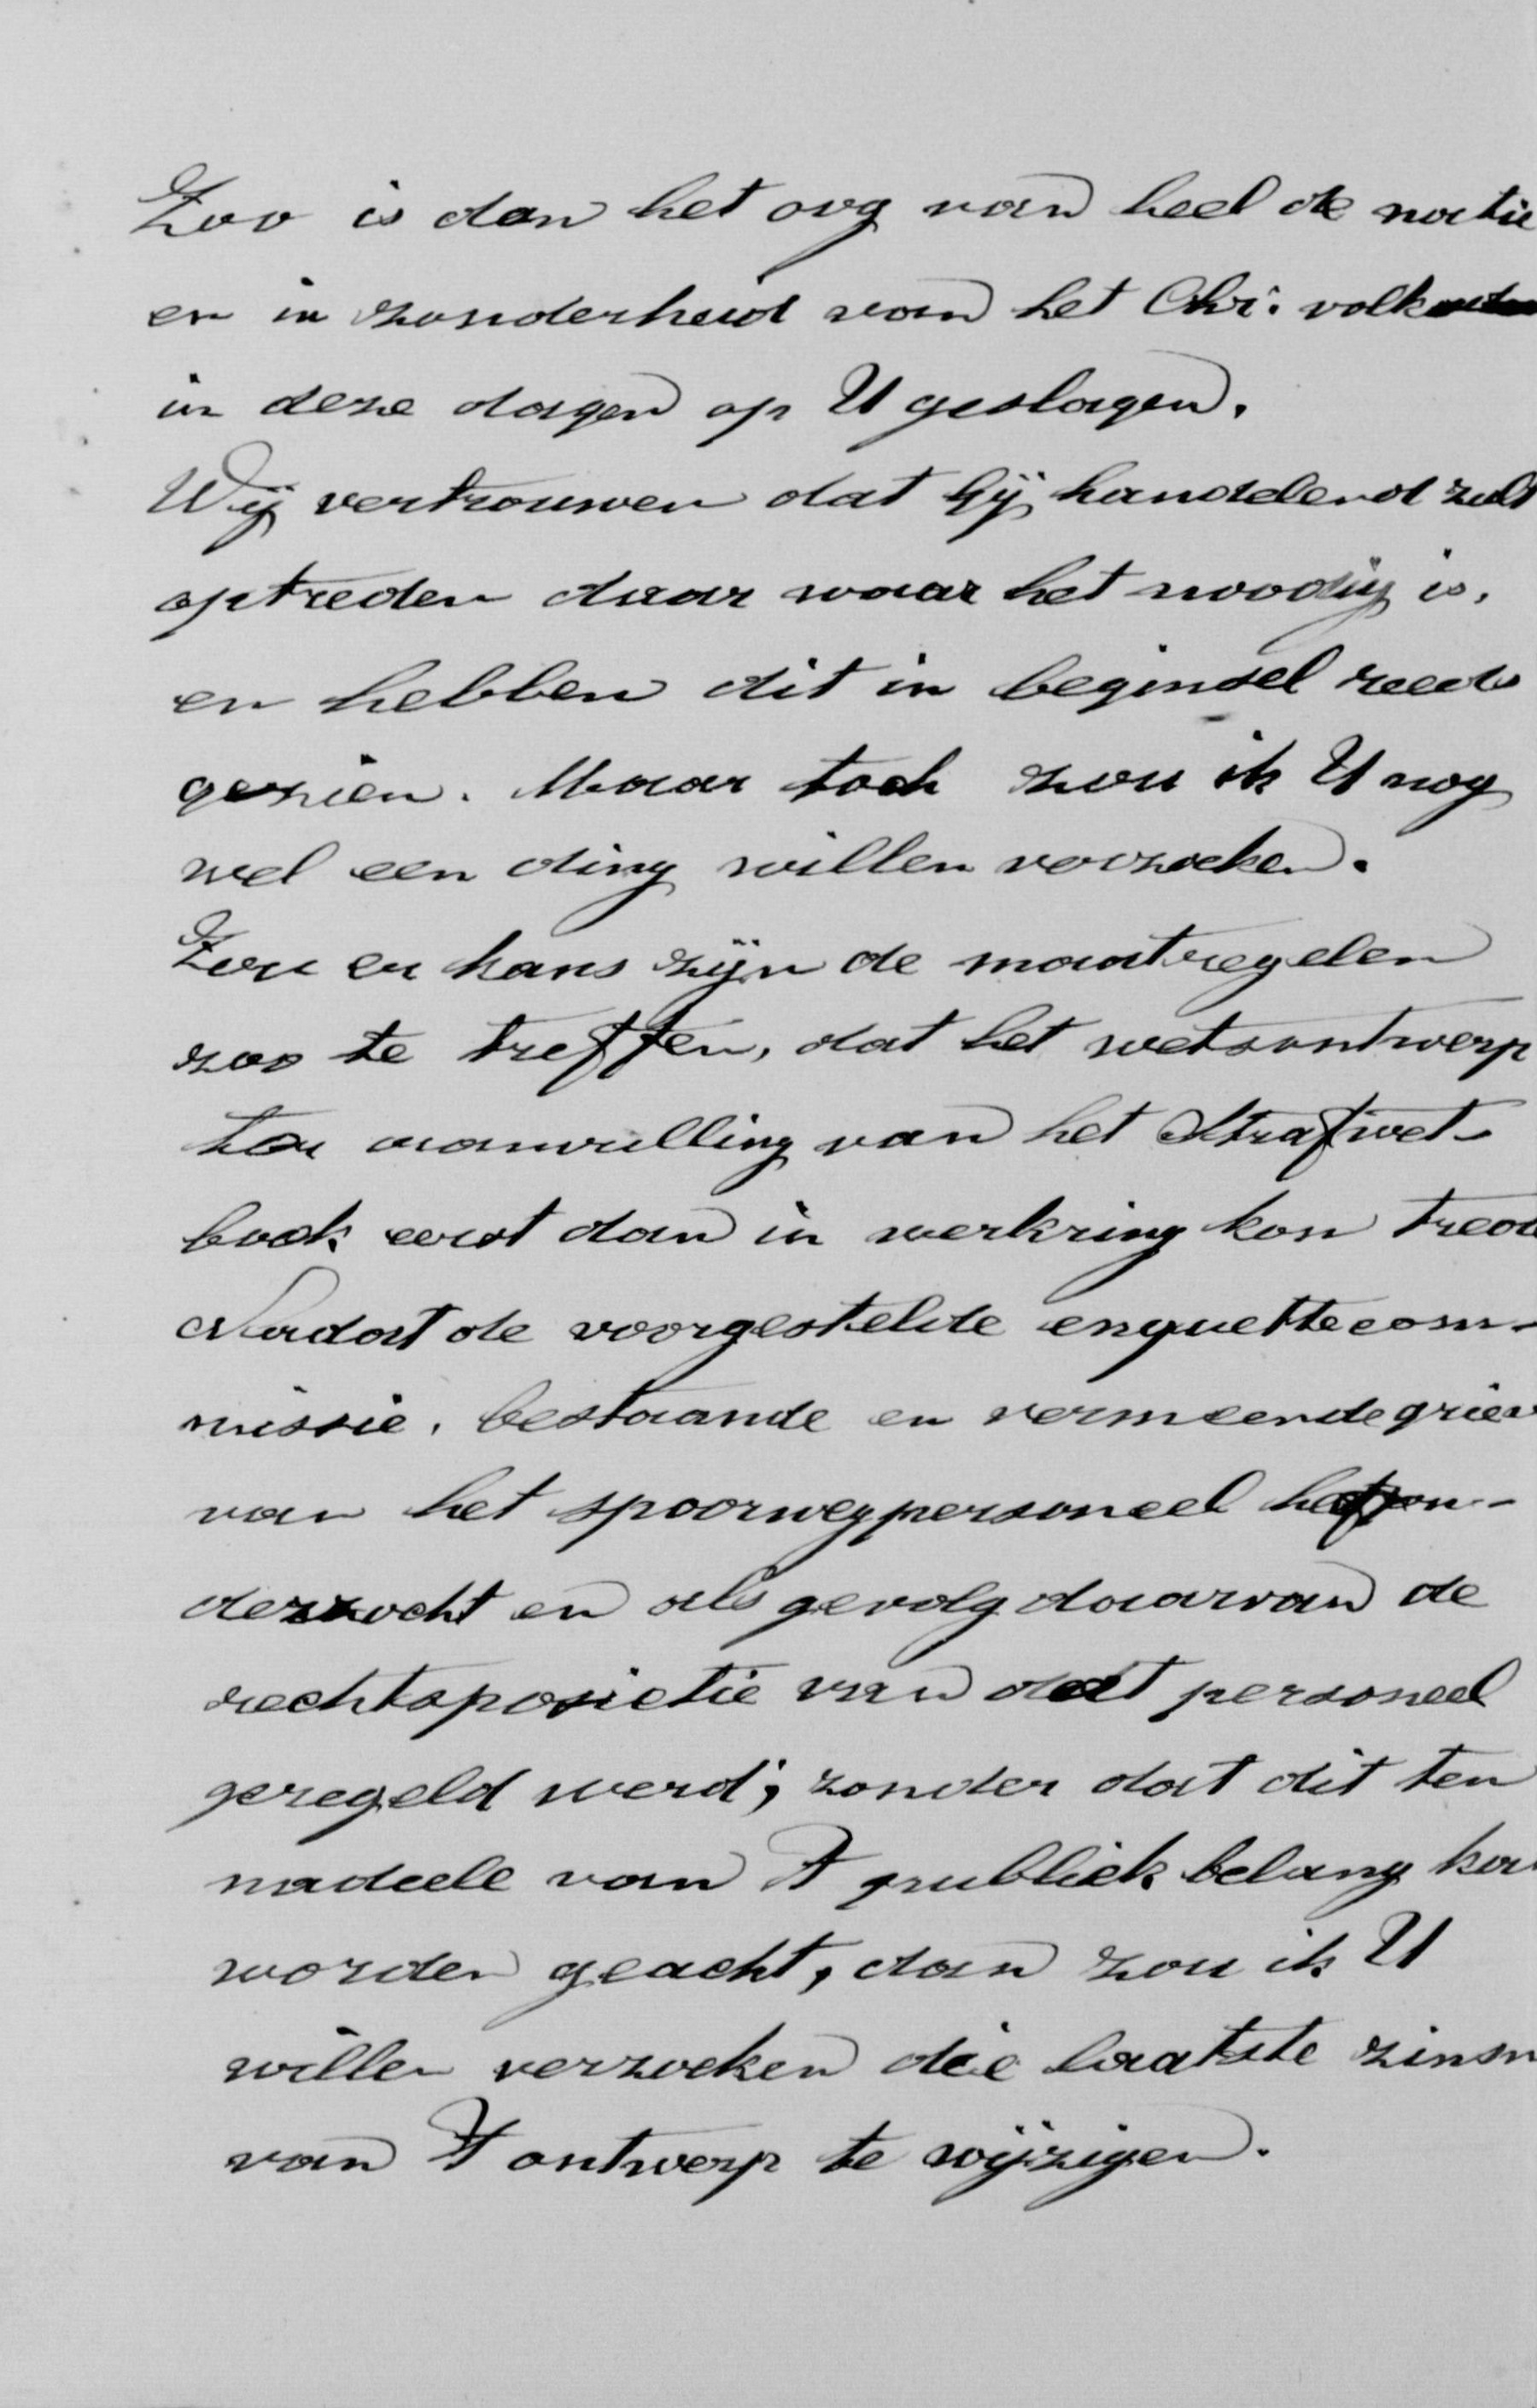 Zoo is dan het oog van heel de natie
en in zonderheid van het Chr. volk
in deze dagen op U geslagen.
Wij vertrouwen dat Gij handelend zult
optreden daar waar het noodig is,
en hebben dit in beginsel reeds
gezien. Maar toch zou ik U nog
wel een ding willen verzoeken.
Zou er kans zijn de maatregelen
zoo te treffen, dat het wetsontwerp
tot aanvulling van het Strafwet-
boek eerst dan in werkring kon treed
Nadat de voorgestelde enquettecom-
missie, bestaande en vermeende griev
van het spoorwegpersoneel heeft on-
derzocht en als gevolg daarvan de
rechtsposietie van dat personeel
geregeld werd; zonder dat dit ten
nadeele van 't publiek belang kan
worden geacht, dan zou ik U
willen verzoeken die laatste zinsn
van 't ontwerp te wijzigen.